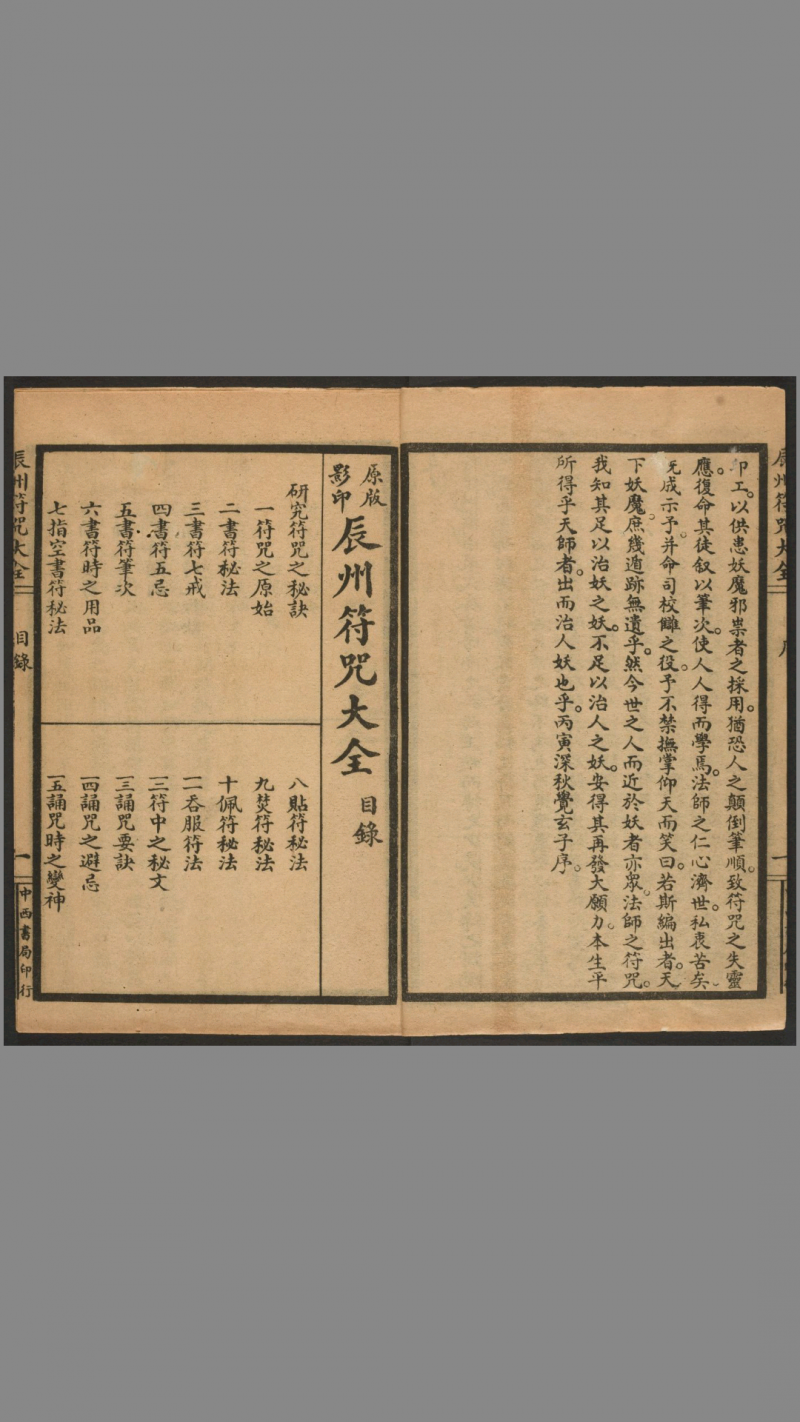 辰州符咒大全
卩工。以供患妖魔邪祟者之採用。猶恐人之顛倒筆順。致符咒之失靈
應。復命其徒叙以筆次。使人人得而學焉。法師之仁心濟世。私衷苦矣。
旣成示予。并命司校讎之役。予不禁撫掌仰天而笑曰。若斯編出者。天
下妖魔。庶幾遁跡無遺乎。然今世之人而近於妖者亦眾。法師之符咒。
我知其足以治妖之妖。不足以治人之妖。安得其再發大願力。本生平
所得乎天師者。出而治人妖也乎。丙寅深秋覺玄子序。
原版影印 辰州符咒大全 目錄
研究符咒之秘訣
一符咒之原始
二書符秘法
三書符七戒
四書符五忌
五書符筆次
六書符時之用品
七指空書符秘法
八貼符秘法
九焚符秘法
十佩符秘法
一一吞服符法
一二符中之秘文
一三誦咒要訣
一四誦咒之避忌
一五誦咒時之變神
辰州符咒大全 目錄 一 中西書局印行